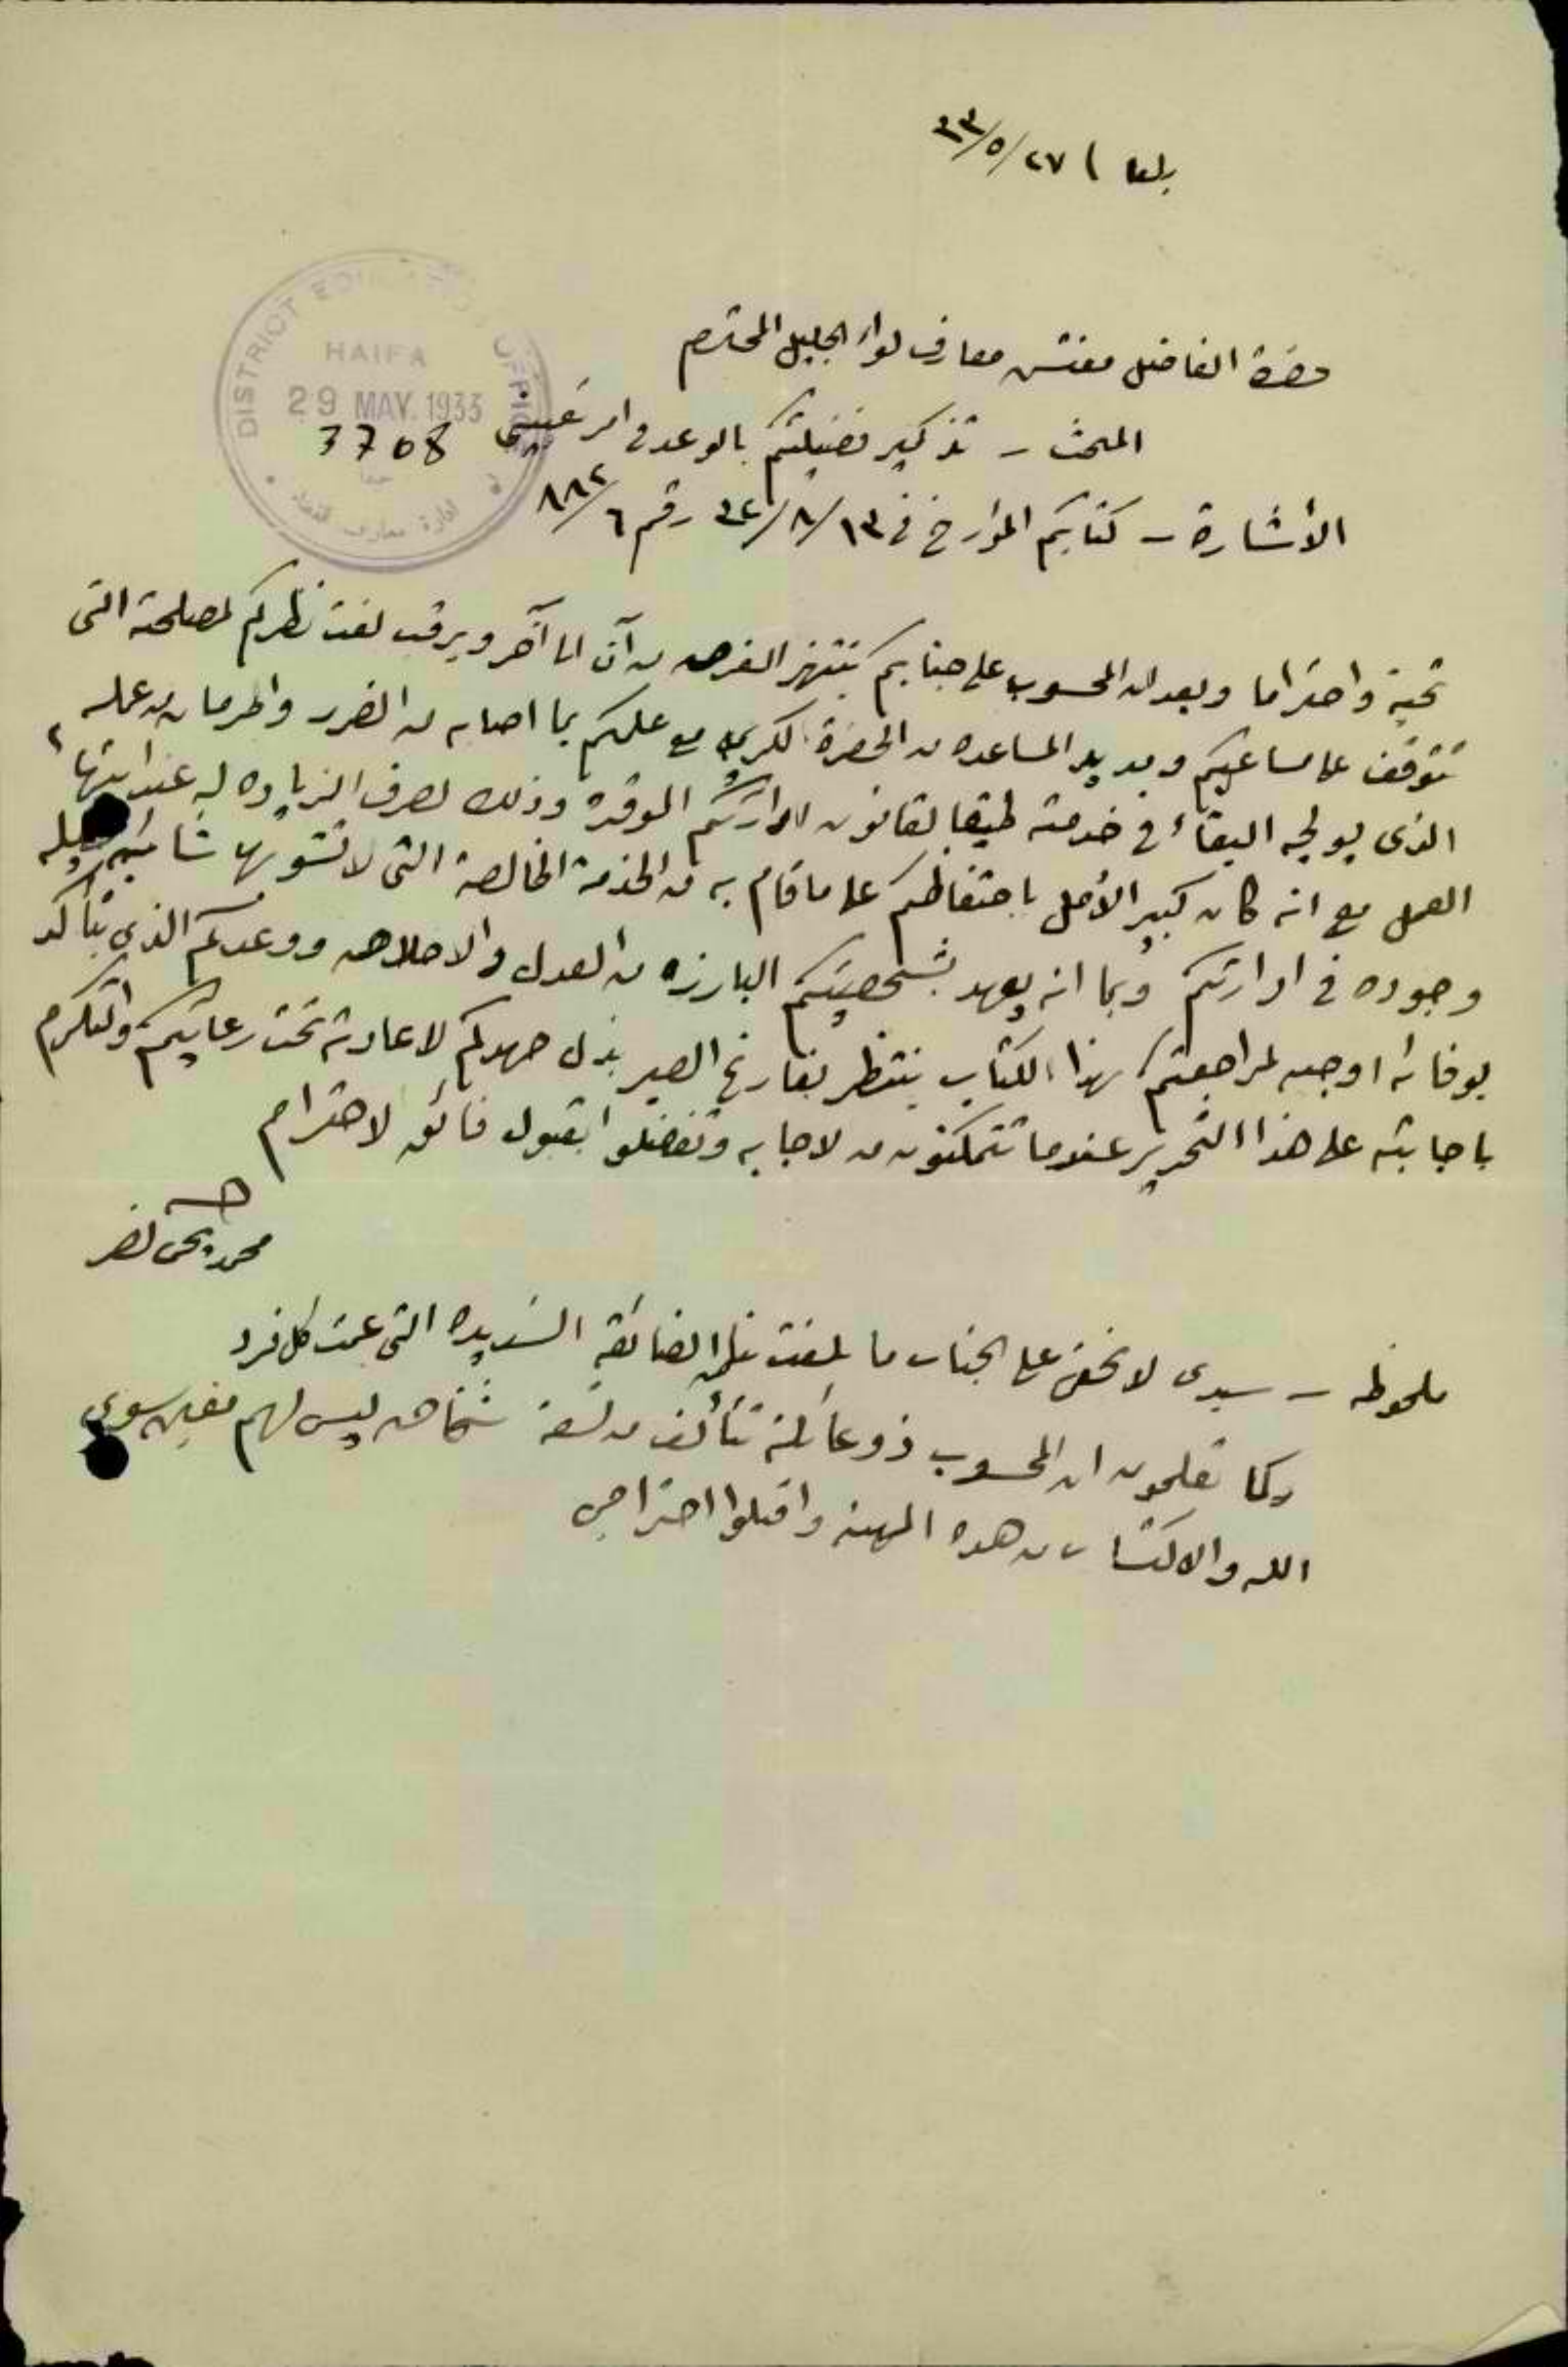 بلعا ) ٢٧/٥/٣٣
DISTRICT EDUCATION OFFICE
HAIFA
29 MAY. 1933
3708
حضرة الفاضل مفتش معارف لواء الجليل المحترم
المبحث - تذكير فضيلتكم بالوعد في امر تعييني
الأشارة - كتابكم المؤرخ في ١٣/٨/٣٢ رقم ٦/٨٨٢
تحية واحتراما وبعد ان المحسوب على جنابكم ينتهز الفرص من آن الى آخر ويرقب لفت نظركم لمصلحته التي
تتوقف على مساعيكم ومد يد المساعده من الحضرة الكريمه مع علمكم بما اصابه من الضرر والحرمان من عمله
الذي يوليه البقاء في خدمته طبقا لقانون ادارتكم الموقره وذلك لصرف الزياده له عند انتهاء
العمل مع انه كان كبير الأمل باحتفاظكم على ما قام به من الخدمة الخالصة التي لا تشوبها شائبه
وجوده في ادارتكم وبما انه يعهد بشخصيتكم البارزه من العدل والاخلاص ووعدكم الذي يتأكد
بوفائه اوجب لمراجعتكم بهذا الكتاب ينتظر بفارغ الصبر بذل جهدكم لاعادته تحت رعايتكم والتكرم
باجابته على هذا التحرير عندما تتمكنون من الاجابه وتفضلوا بقبول فائق الاحترام
محمد يحيى نصر
ملحوظه - سيدي لا يخفى على الجناب ما بلغت تلك الضائقه الشديده التي عمت كل فرد
وكما تعلمون ان المحسوب ذو عائلة تتألف من تسعة اشخاص ليس لهم معين سوى
الله والاكتساب من هذه المهنه واقبلوا احترامي